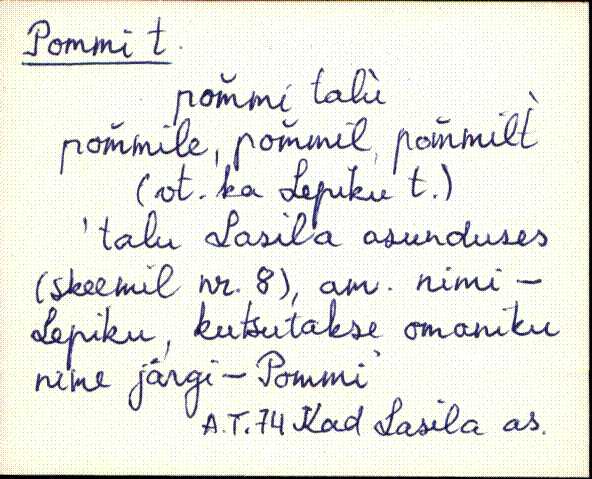 Pommi t.
pom̆mi talù
pom̆mile, pom̆mil, pom̆milt̀
(vt. ka Lepiku t.)
'talu Lasila asunduses
(skeemil nr. 8), am. nimi -
Lepiku, kutsutakse omaniku
nime järgi - Pommi'
A.T.74 Kad Lasila as.